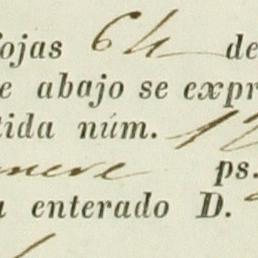 ojas 64 de
e abajo se expr
tida núm. 12
ps.
a enterado D.